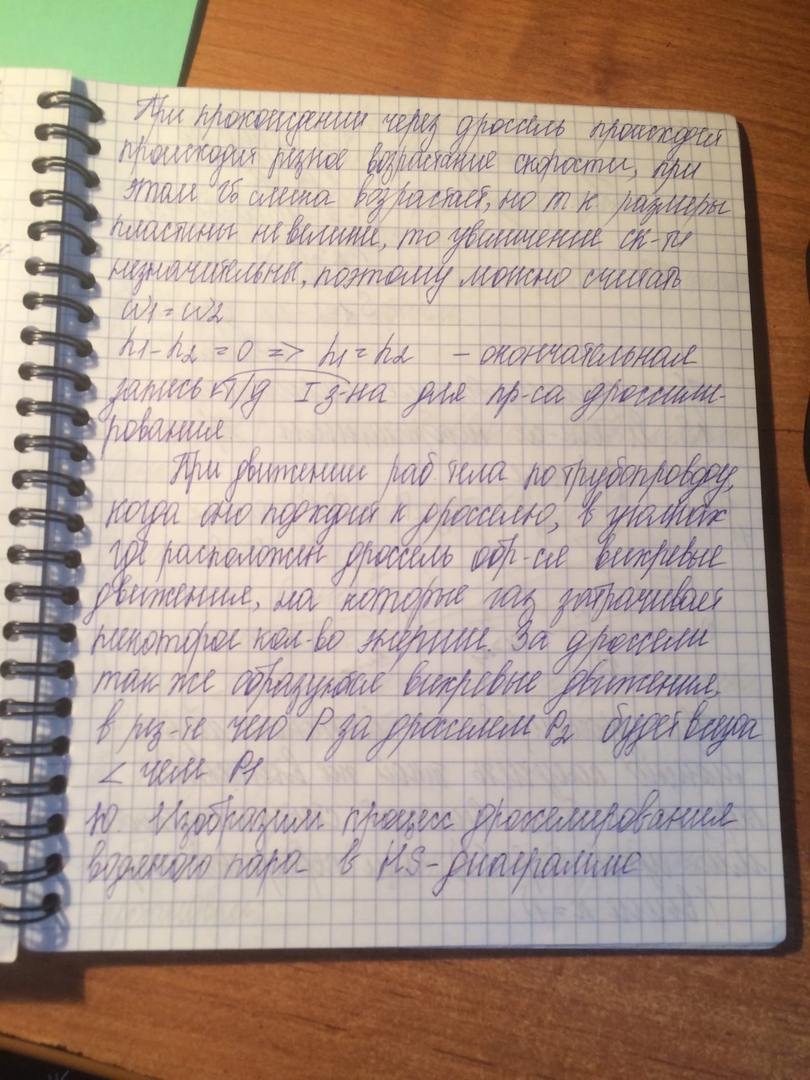 При прохождении через дроссель происходит
происходит резное возрастание скорости, при
этом Vб смена возрастает, но т к размеры
пластины не велики, то увеличение ск-ти
незначительны, поэтому можно считать
w1 = w2
h1 - h2 = 0 => h1 = h2 - окончательная
запись Т/д I з-на для пр-са дроссили-
рования.
При движении раб. тела по трубопроводу,
когда оно подходит к дросселю, в уголках
где расположен дроссель обр-ся вихревые
движения, на которые газ затрачивает
некоторое кол-во энергии. За дроссели
так же образуются вихревые движения,
в рез-те чего P за дросселем P2 будет всегда
< чем P1
10. Изобразим процесс дроселирования
водяного пара в HS-диаграмме